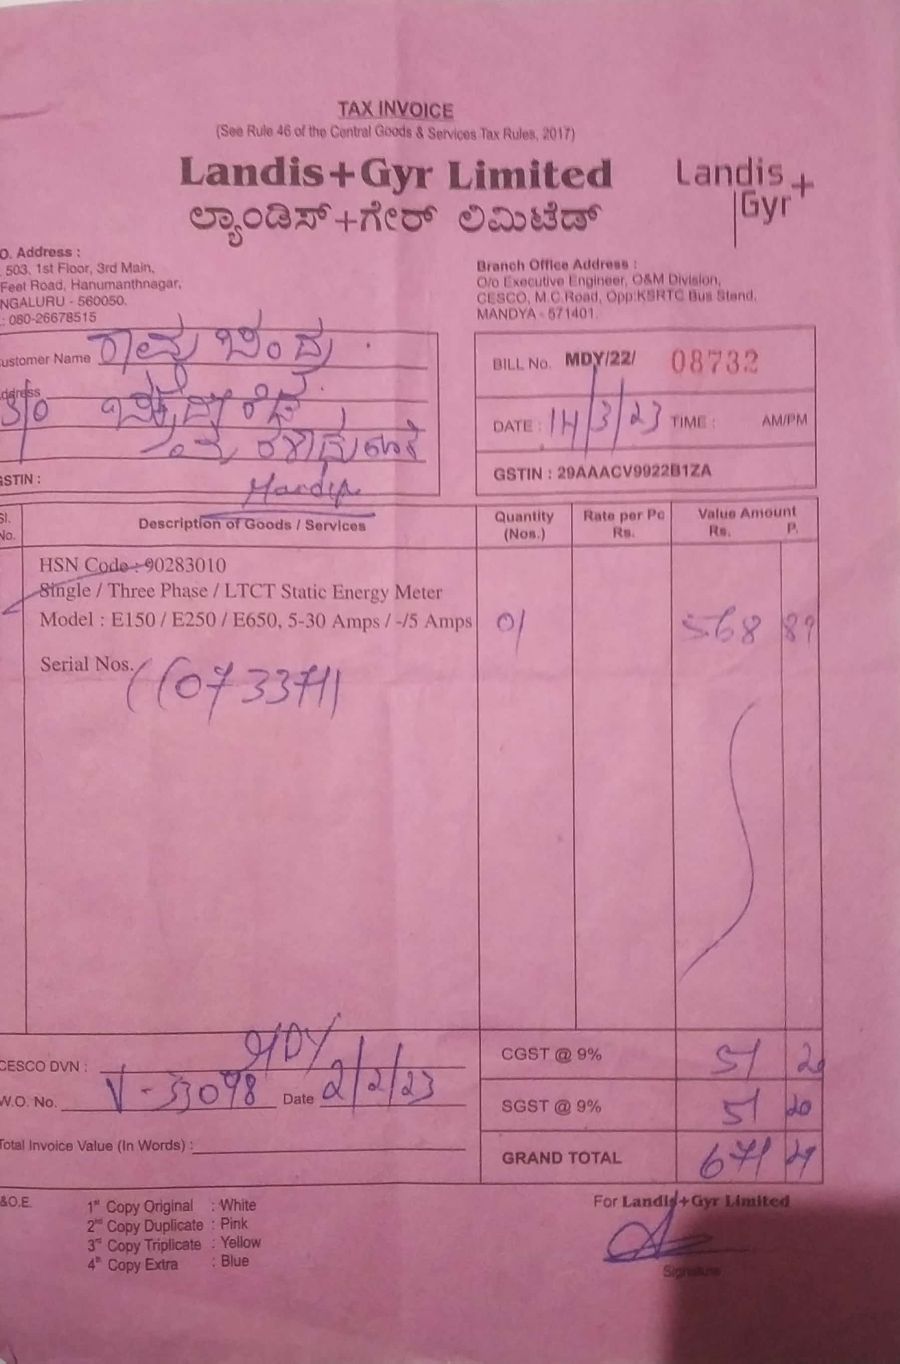 TAX INVOICE
(See Rule 46 of the Central Goods & Services Tax Rules, 2017)
Landis+Gyr Limited
ಲ್ಯಾಂಡಿಸ್+ಗೇರ್ ಲಿಮಿಟೆಡ್
Landis+
Gyr
O. Address :
503, 1st Floor, 3rd Main,
Feet Road, Hanumanthnagar,
NGALURU - 560050.
: 080-26678515
Branch Office Address :
O/o Executive Engineer, O&M Division,
CESCO, M.C.Road, Opp:KSRTC Bus Stand,
MANDYA - 571401.
ustomer Name
ddress S/o
GSTIN :
BILL No. MDY/22/ 08732
DATE : 14/3/23 TIME : AM/PM
GSTIN : 29AAACV9922B1ZA
Sl. No. Description of Goods / Services Quantity (Nos.) Rate per Pc Rs. Value Amount Rs. P.
HSN Code : 90283010
Single / Three Phase / LTCT Static Energy Meter
Model : E150 / E250 / E650, 5-30 Amps / -/5 Amps 01 568 89
Serial Nos.
CESCO DVN : MDY
W.O. No. V-33098 Date 2/2/23
Total Invoice Value (In Words) :
CGST @ 9% 51 20
SGST @ 9% 51 20
GRAND TOTAL 671
&O.E.
1st Copy Original : White
2nd Copy Duplicate : Pink
3rd Copy Triplicate : Yellow
4th Copy Extra : Blue
For Landis+Gyr Limited
Signature